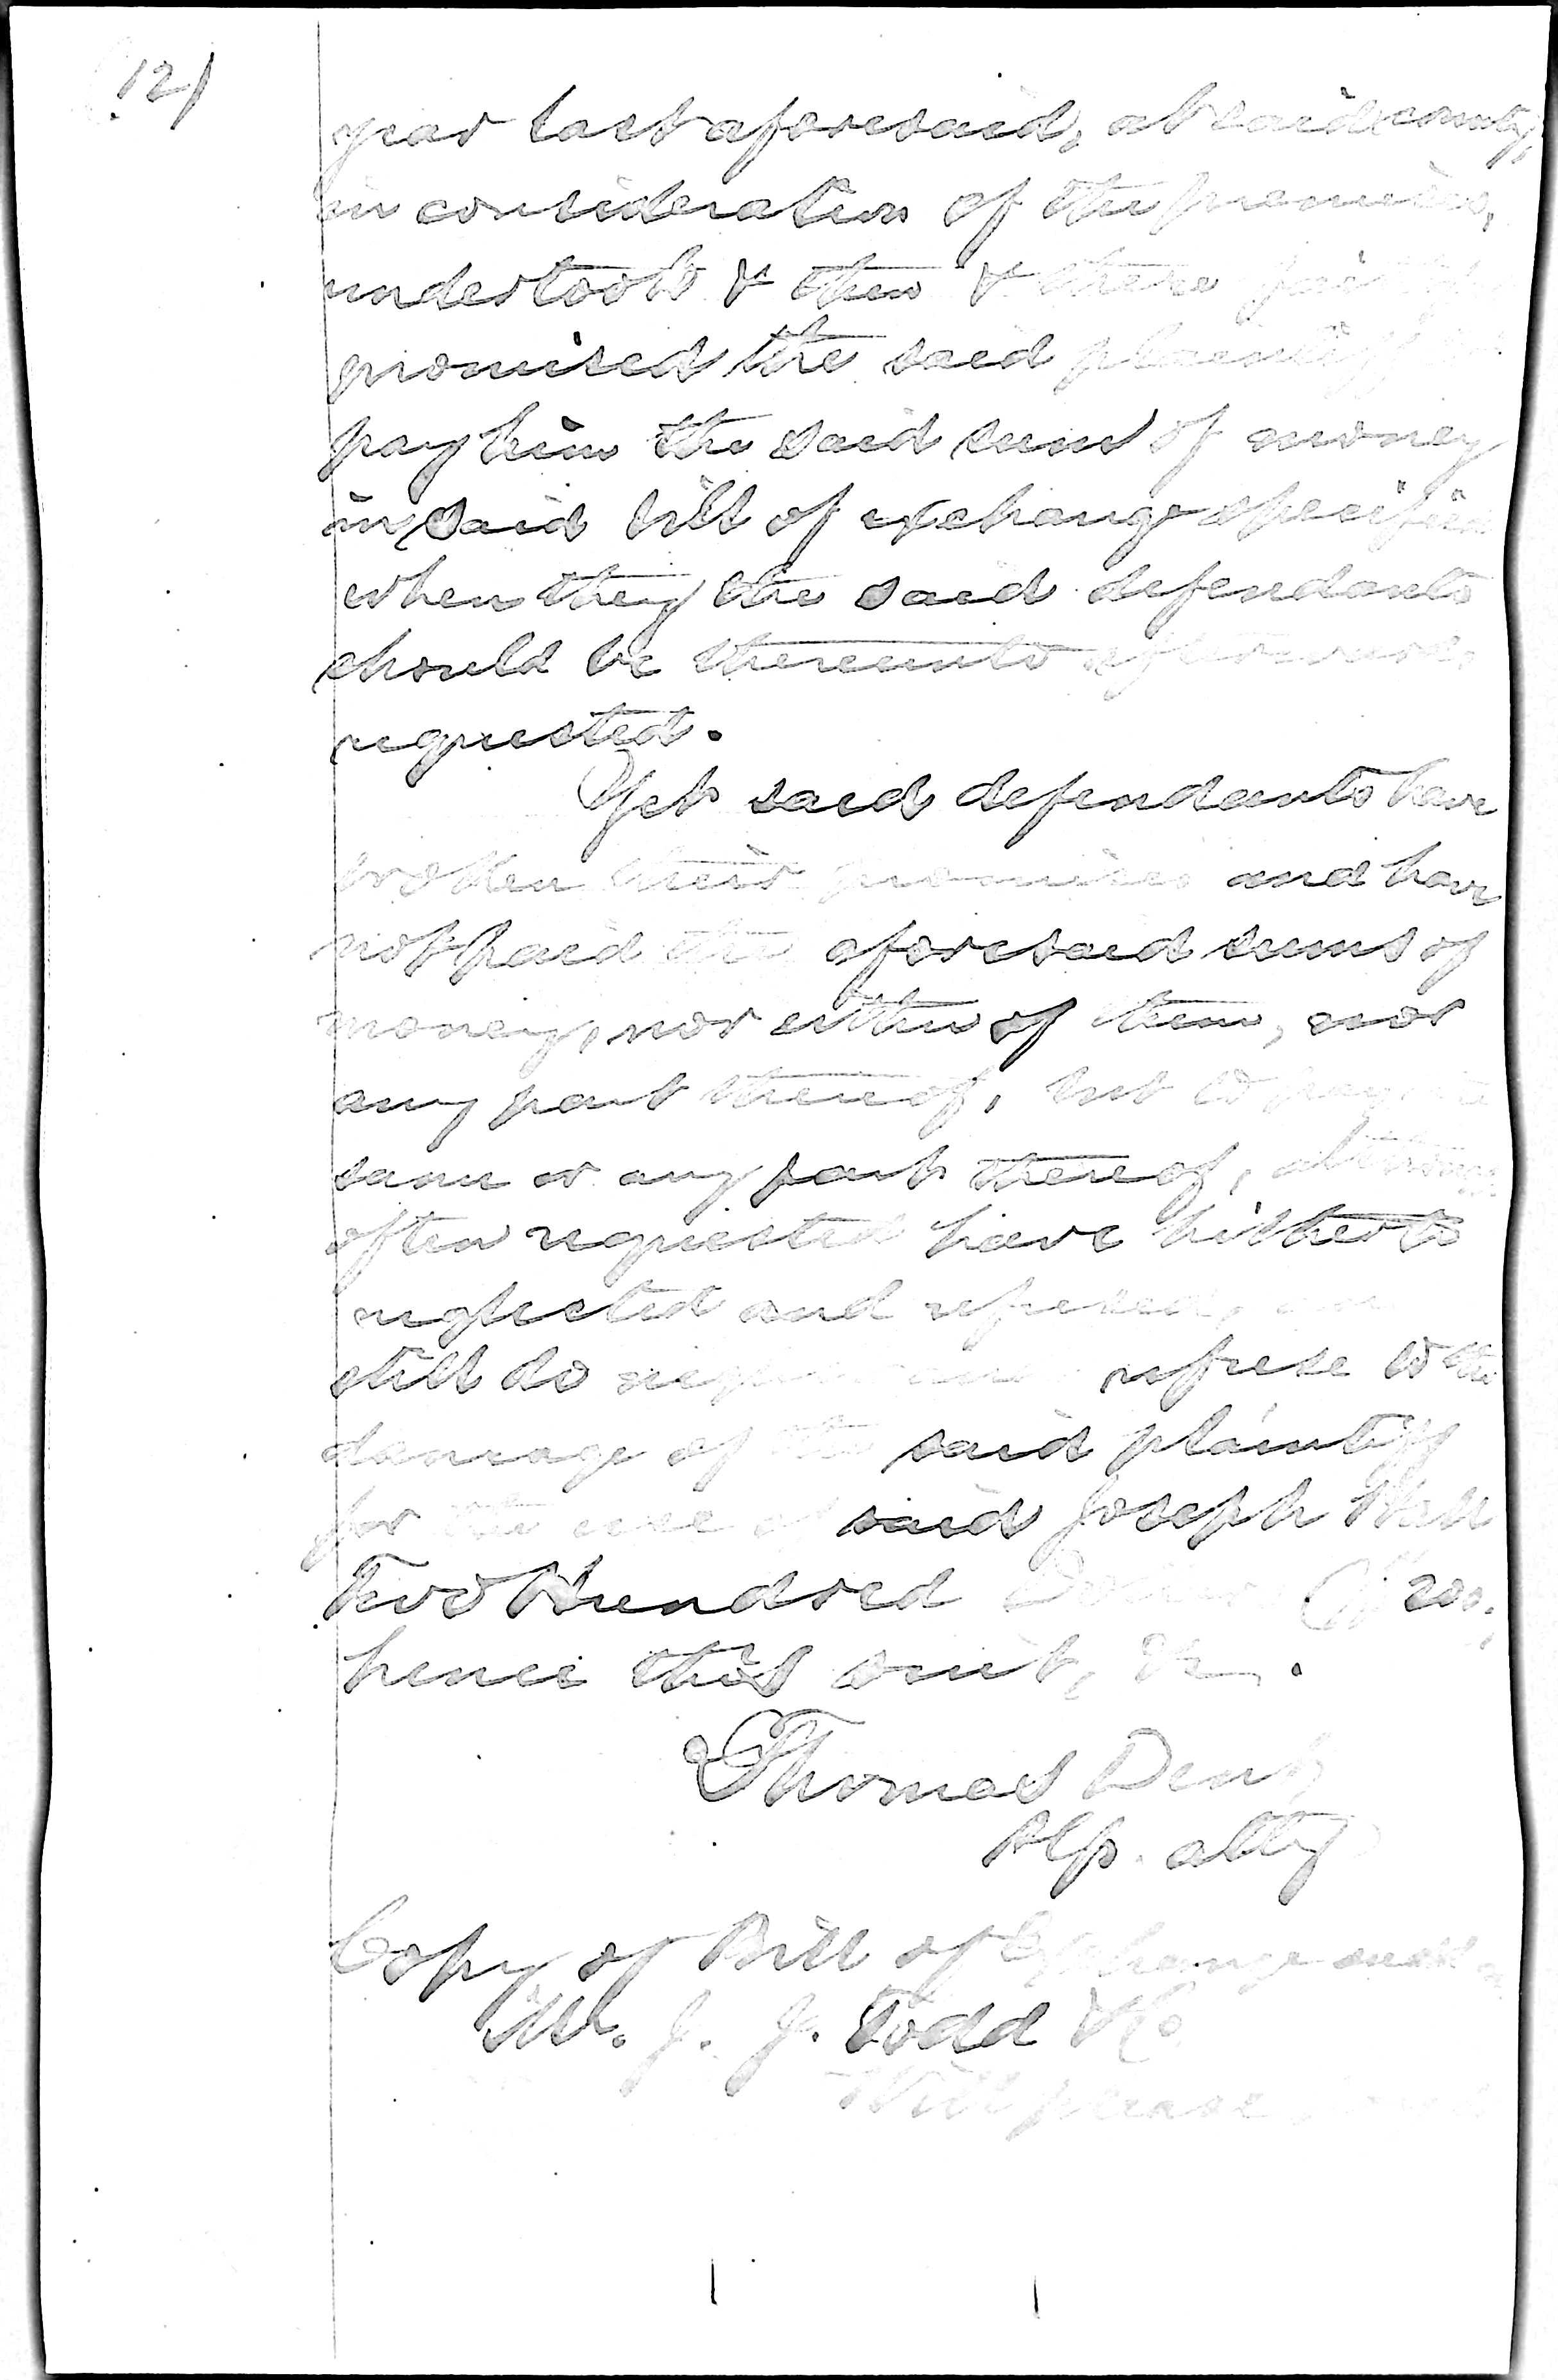 (12)
year last aforesaid, at said county,
in consideration of the premises,
undertook & then & there
promised the said plaintiff
pay him the said sum of money
in said bill of exchange specified
when they the said defendants
should be thereunto afterwards
requested.
Yet said defendants have
broken their promises and have
not paid the aforesaid sums of
money, nor either of them, nor
any part thereof, but to pay
same or any part thereof, although
often requested have hitherto
neglected and refused,
still do refuse to the
damage of the said plaintiff
for the use of said Joseph Hall
Two Hundred Dollars ($200.
hence this suit, &c.
Thomas Dent
Plfs. atty
Copy of Bill of Exchange sued
M. J. J. Todd & Co
Will please